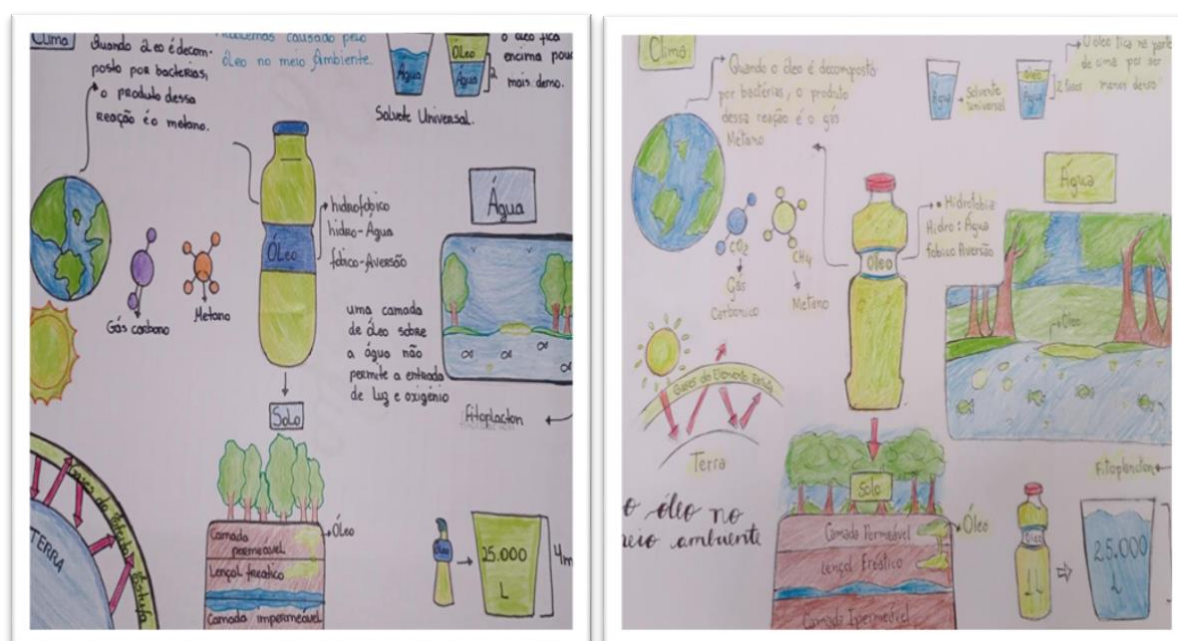 Clima
Quando óleo é decom-
posto por bactérias,
o produto dessa
reação é o metano.
Problemas causado pelo
óleo no meio Ambiente.
Água
Óleo
Água
2
Solvete Universal.
o óleo fica
encima
mais denso.
Gás carbono
Metano
ÓLeo
hidrofobico
hidro-Água
fobico-Aversão
Água
uma camada
de óleo sobre
a água não
permite a entrada
de Luz e oxigênio
Fitoplacton
Solo
Óleo
Camada
permeável
Lençol freatico
Camada impermeável
TERRA
Estufa
Óleo
25.000
L
4m
Clima
Quando o óleo é decomposto
por bactérias, o produto
dessa reação é o gás
Metano
Água
Solvente
universal
óleo
Água
2 fases
O óleo fica na parte
de cima por ser
menos denso
CO2
Gás
Carbonico
CH4
Metano
Óleo
Hidrofobia
Hidro: Água
fobico Aversão
Água
Óleo
Fitoplancton
Terra
Solo
Óleo
Camada Permeável
Lençol Freático
Camada Ipermeável
o óleo no
meio ambiente
Óleo
1L
25.000
L